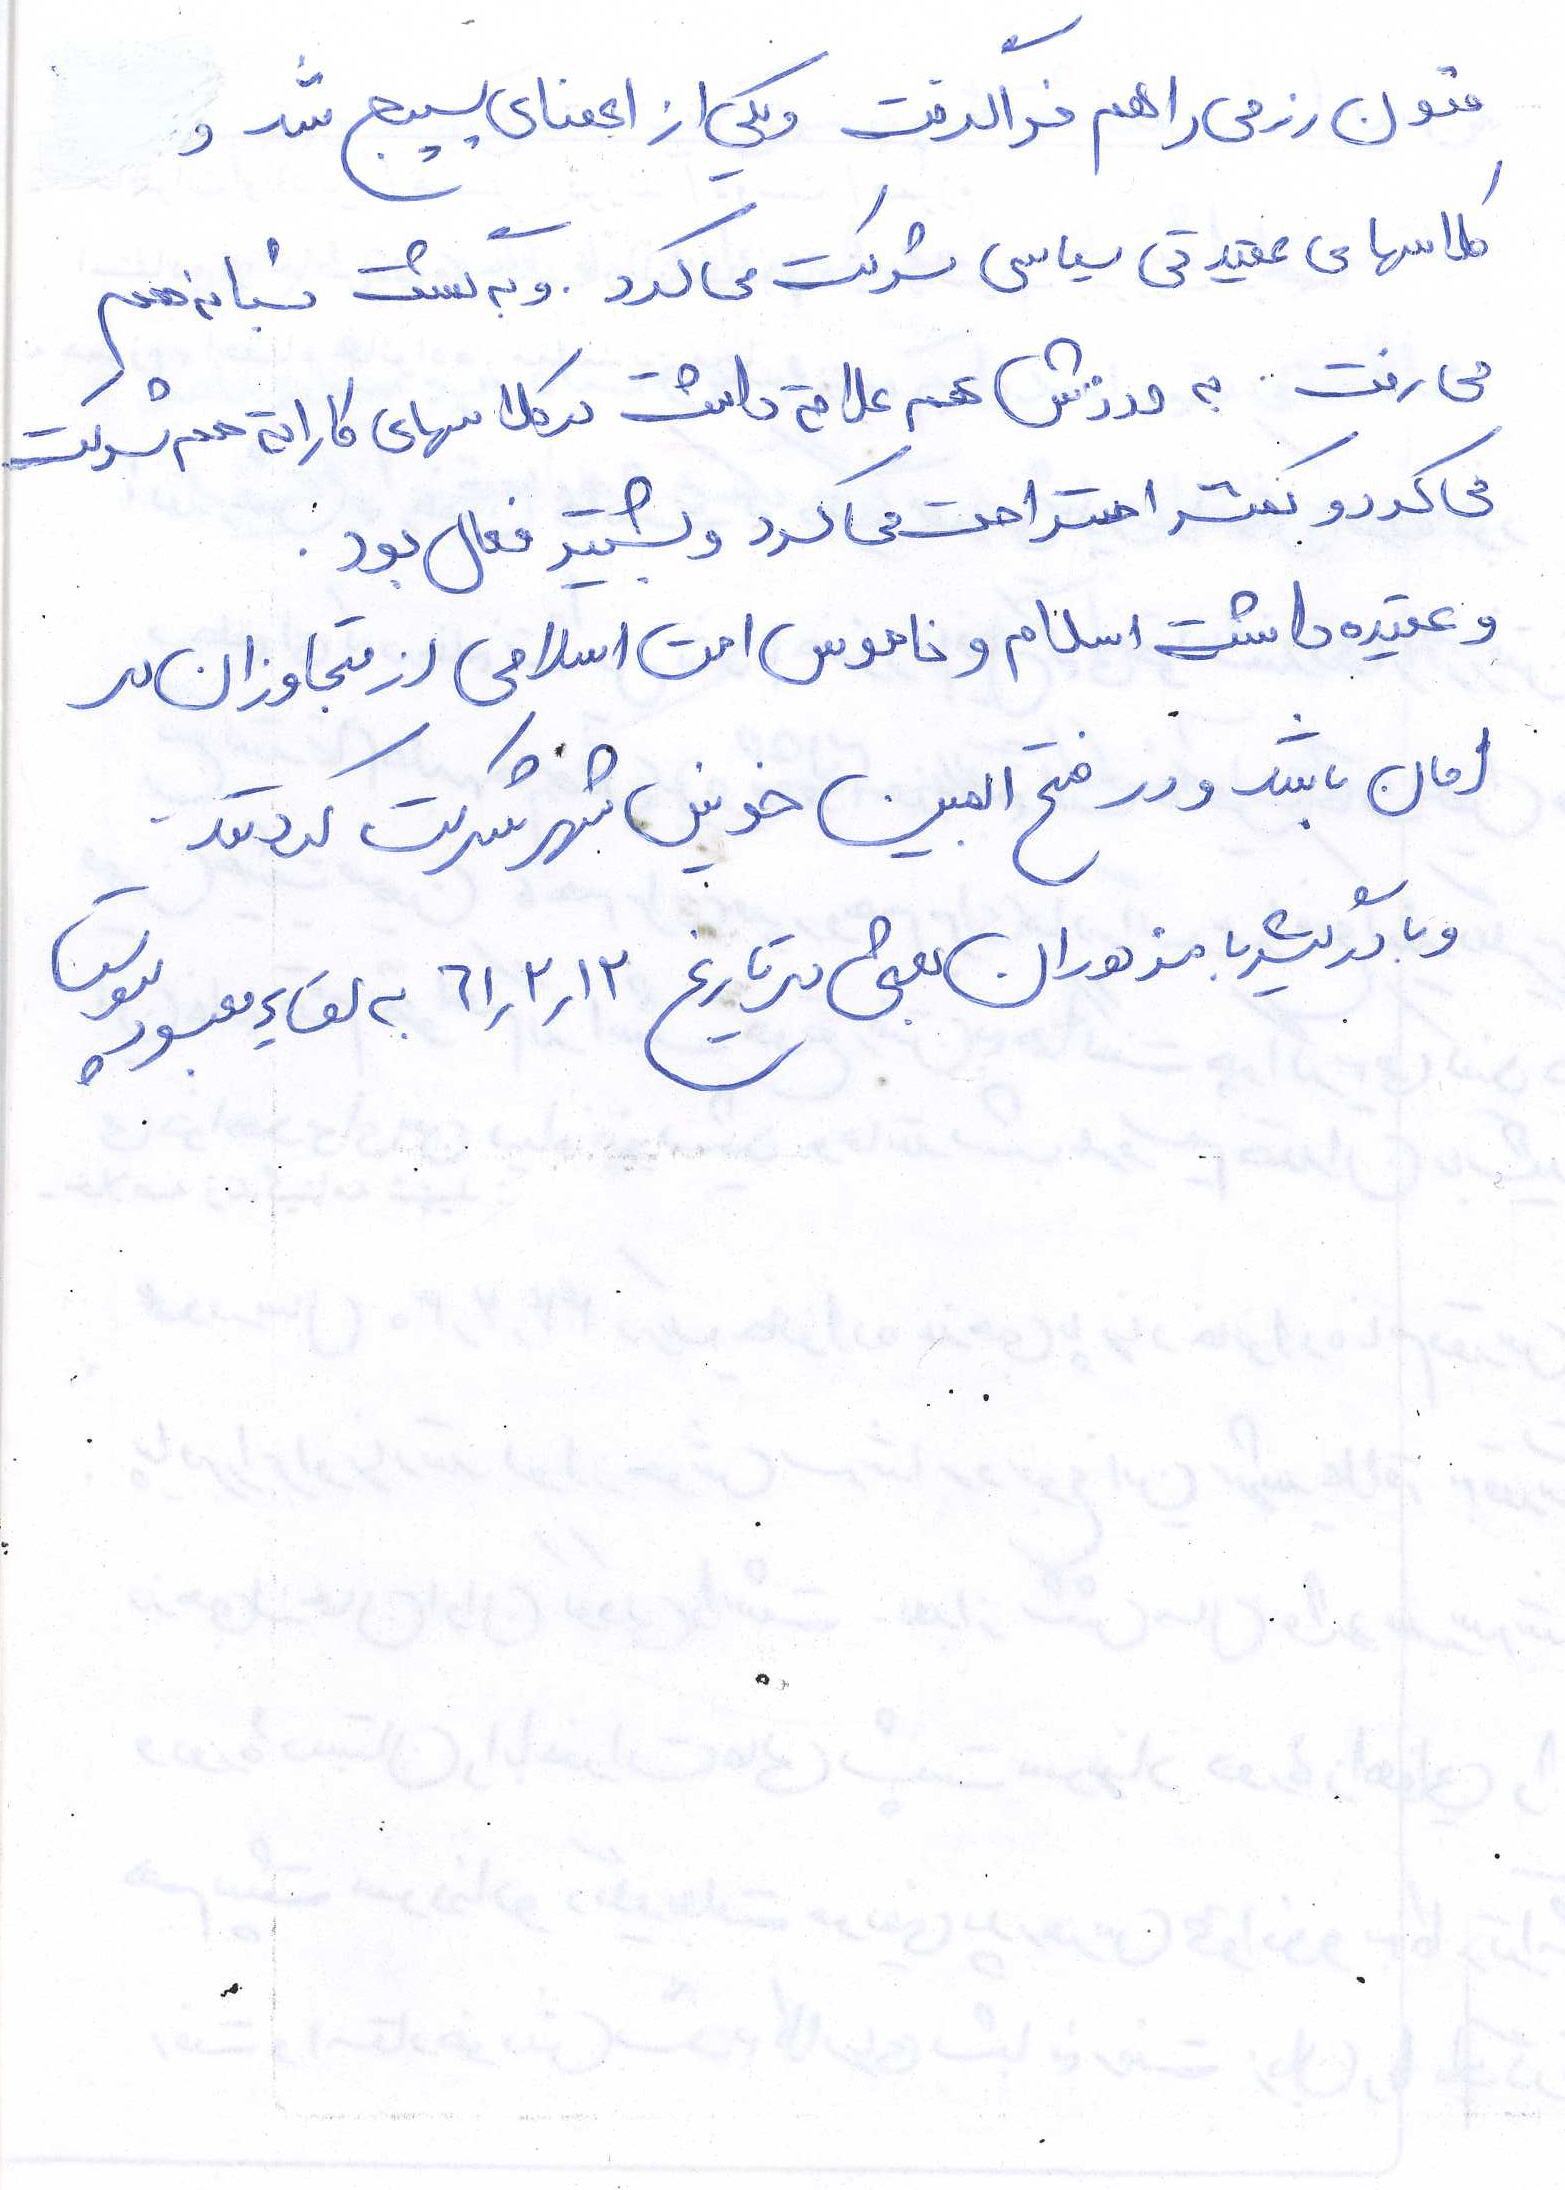 فنون رزمی را هم فرا گرفت ویکی از اعضای بسیج شد و
کلاسهای عقیدتی سیاسی شرکت می کرد . و به گشت شبانه هم
می رفت . به ورزش هم علاقه داشت در کلاسهای کاراته هم شرکت
می کرد و کمتر استراحت می کرد و بیشتر فعال بود .
و عقیده داشت اسلام و ناموس امت اسلامی از متجاوزان در
امان باشد و در فتح المبین خونین شهر شرکت کردند
و با درگیری با مزدوران بعثی در تاریخ ۶۱٫۳٫۱۳ به لقاء معبود پیوست